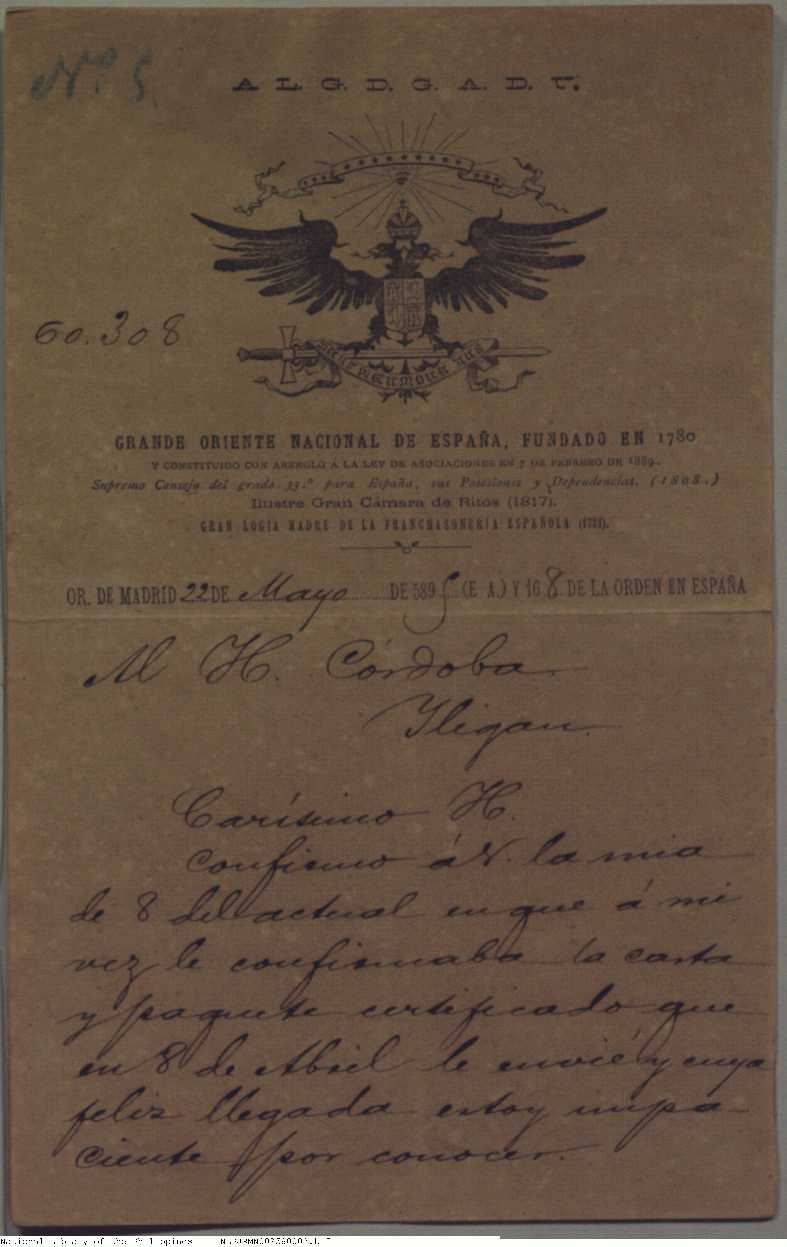 Nº 5
A. L. G. D. G. A. D. U.
60.308
DEUS MEUMQUE JUS
GRANDE ORIENTE NACIONAL DE ESPAÑA, FUNDADO EN 1780
Y CONSTITUIDO CON ARREGLO Á LA LEY DE ASOCIACIONES EN 7 DE FEBRERO DE 1889.
Supremo Consejo del grado 33.º para España, sus Posesiones y Dependencias. (1808.)
Ilustre Gran Cámara de Ritos (1817).
GRAN LOGIA MADRE DE LA FRANCMASONERÍA ESPAÑOLA
OR. DE MADRID 22 DE Mayo DE 5895 (E. A.) Y 168 DE LA ORDEN EN ESPAÑA
Al H. Córdoba
Iligan.
Carísimo H.
Confirmo á V. la mia
de 8 del actual en que á mi
vez le confirmaba la carta
y paquete certificado que
en 8 de Abril le envié y cuya
feliz llegada estoy impa-
ciente por conocer.
National Library of the Philippines